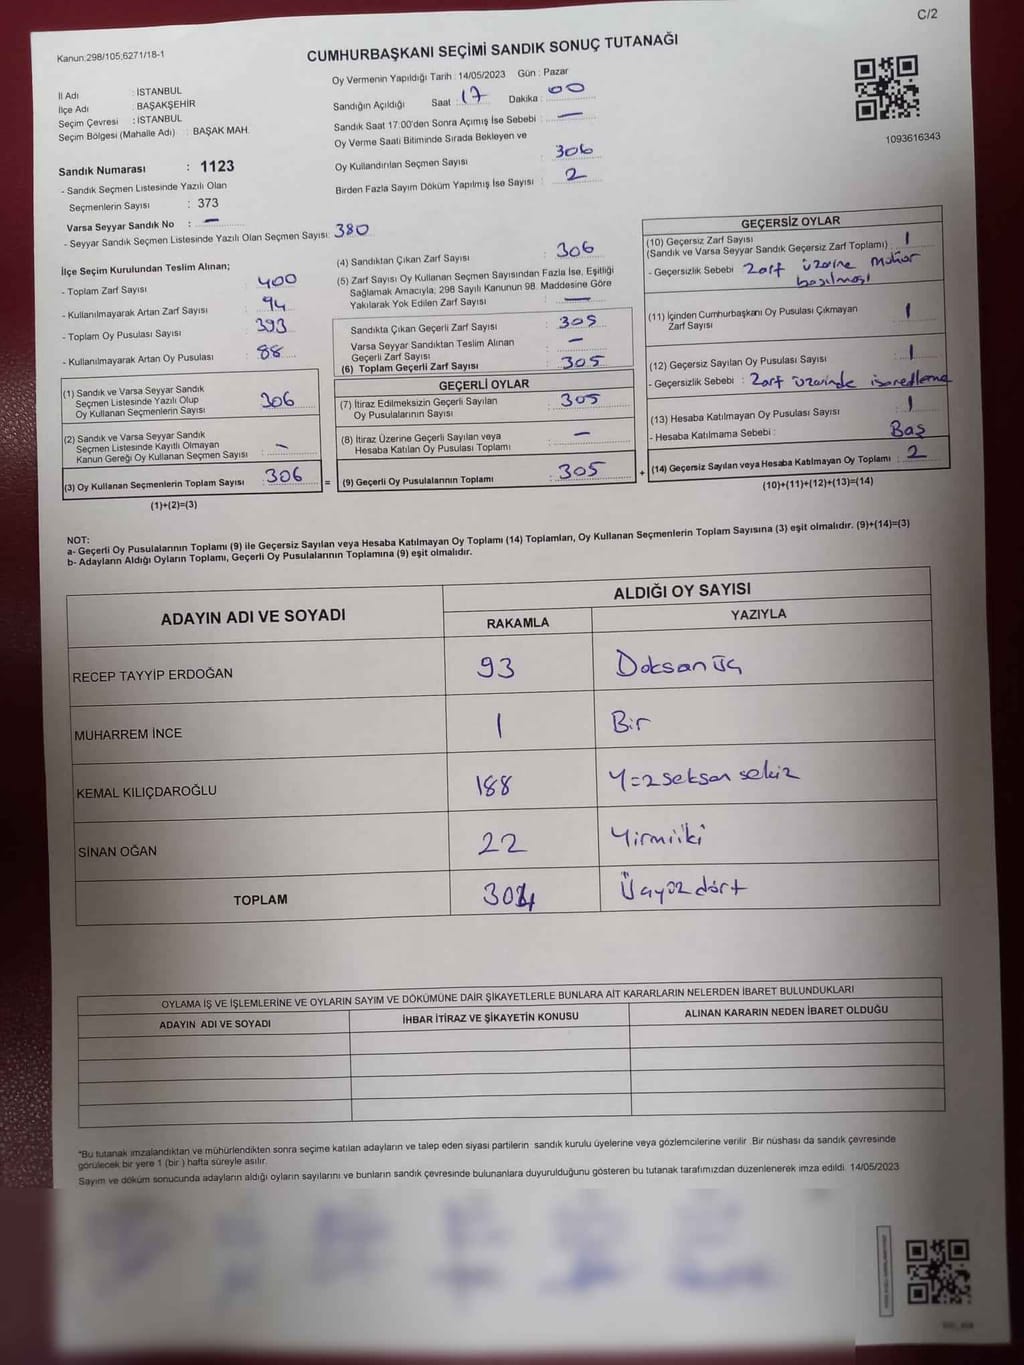 C/2
Kanun:298/105,6271/18-1
CUMHURBAŞKANI SEÇİMİ SANDIK SONUÇ TUTANAĞI
Oy Vermenin Yapıldığı Tarih : 14/05/2023 Gün : Pazar
İl Adı : İSTANBUL
İlçe Adı : BAŞAKŞEHİR
Seçim Çevresi : İSTANBUL
Seçim Bölgesi (Mahalle Adı) : BAŞAK MAH.
Sandığın Açıldığı Saat : 17 Dakika : 00
Sandık Saat 17:00'den Sonra Açılmış İse Sebebi : —
Oy Verme Saati Bitiminde Sırada Bekleyen ve
Oy Kullandırılan Seçmen Sayısı : 306
Birden Fazla Sayım Döküm Yapılmış İse Sayısı : 2
1093616343
Sandık Numarası : 1123
- Sandık Seçmen Listesinde Yazılı Olan
Seçmenlerin Sayısı : 373
Varsa Seyyar Sandık No : —
- Seyyar Sandık Seçmen Listesinde Yazılı Olan Seçmen Sayısı: 380
İlçe Seçim Kurulundan Teslim Alınan;
- Toplam Zarf Sayısı : 400
- Kullanılmayarak Artan Zarf Sayısı : 94
- Toplam Oy Pusulası Sayısı : 393
- Kullanılmayarak Artan Oy Pusulası : 88
(1) Sandık ve Varsa Seyyar Sandık
Seçmen Listesinde Yazılı Olup
Oy Kullanan Seçmenlerin Sayısı : 306
(2) Sandık ve Varsa Seyyar Sandık
Seçmen Listesinde Kayıtlı Olmayan
Kanun Gereği Oy Kullanan Seçmen Sayısı : —
(3) Oy Kullanan Seçmenlerin Toplam Sayısı : 306
(1)+(2)=(3)
(4) Sandıktan Çıkan Zarf Sayısı : 306
(5) Zarf Sayısı Oy Kullanan Seçmen Sayısından Fazla İse, Eşitliği
Sağlamak Amacıyla; 298 Sayılı Kanunun 98. Maddesine Göre
Yakılarak Yok Edilen Zarf Sayısı : —
Sandıkta Çıkan Geçerli Zarf Sayısı : 305
Varsa Seyyar Sandıktan Teslim Alınan
Geçerli Zarf Sayısı : —
(6) Toplam Geçerli Zarf Sayısı : 305
GEÇERLİ OYLAR
(7) İtiraz Edilmeksizin Geçerli Sayılan
Oy Pusulalarının Sayısı : 305
(8) İtiraz Üzerine Geçerli Sayılan veya
Hesaba Katılan Oy Pusulası Toplamı : —
= (9) Geçerli Oy Pusulalarının Toplamı : 305
GEÇERSİZ OYLAR
(10) Geçersiz Zarf Sayısı
(Sandık ve Varsa Seyyar Sandık Geçersiz Zarf Toplamı) : 1
- Geçersizlik Sebebi : Zarf üzerine mühür
basılması
(11) İçinden Cumhurbaşkanı Oy Pusulası Çıkmayan
Zarf Sayısı : 1
(12) Geçersiz Sayılan Oy Pusulası Sayısı : 1
- Geçersizlik Sebebi : Zarf üzerinde
(13) Hesaba Katılmayan Oy Pusulası Sayısı : 1
- Hesaba Katılmama Sebebi : Boş
+ (14) Geçersiz Sayılan veya Hesaba Katılmayan Oy Toplamı : 2
(10)+(11)+(12)+(13)=(14)
NOT:
a- Geçerli Oy Pusulalarının Toplamı (9) ile Geçersiz Sayılan veya Hesaba Katılmayan Oy Toplamı (14) Toplamları, Oy Kullanan Seçmenlerin Toplam Sayısına (3) eşit olmalıdır. (9)+(14)=(3)
b- Adayların Aldığı Oyların Toplamı, Geçerli Oy Pusulalarının Toplamına (9) eşit olmalıdır.
ADAYIN ADI VE SOYADI
ALDIĞI OY SAYISI
RAKAMLA YAZIYLA
RECEP TAYYİP ERDOĞAN 93 Doksanüç
MUHARREM İNCE 1 Bir
KEMAL KILIÇDAROĞLU 188 Yüzseksen sekiz
SİNAN OĞAN 22 Yirmiiki
TOPLAM 304 Üçyüz dört
OYLAMA İŞ VE İŞLEMLERİNE VE OYLARIN SAYIM VE DÖKÜMÜNE DAİR ŞİKAYETLERLE BUNLARA AİT KARARLARIN NELERDEN İBARET BULUNDUKLARI
ADAYIN ADI VE SOYADI İHBAR İTİRAZ VE ŞİKAYETİN KONUSU ALINAN KARARIN NEDEN İBARET OLDUĞU
*Bu tutanak imzalandıktan ve mühürlendikten sonra seçime katılan adayların ve talep eden siyasi partilerin sandık kurulu üyelerine veya gözlemcilerine verilir. Bir nüshası da sandık çevresinde
görülecek bir yere 1 (bir ) hafta süreyle asılır.
Sayım ve döküm sonucunda adayların aldığı oyların sayılarını ve bunların sandık çevresinde bulunanlara duyurulduğunu gösteren bu tutanak tarafımızdan düzenlenerek imza edildi. 14/05/2023